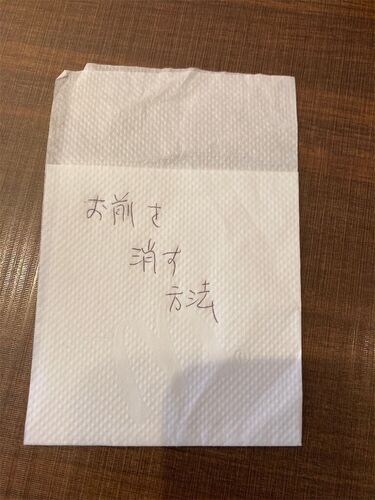 お前を
消す
方法